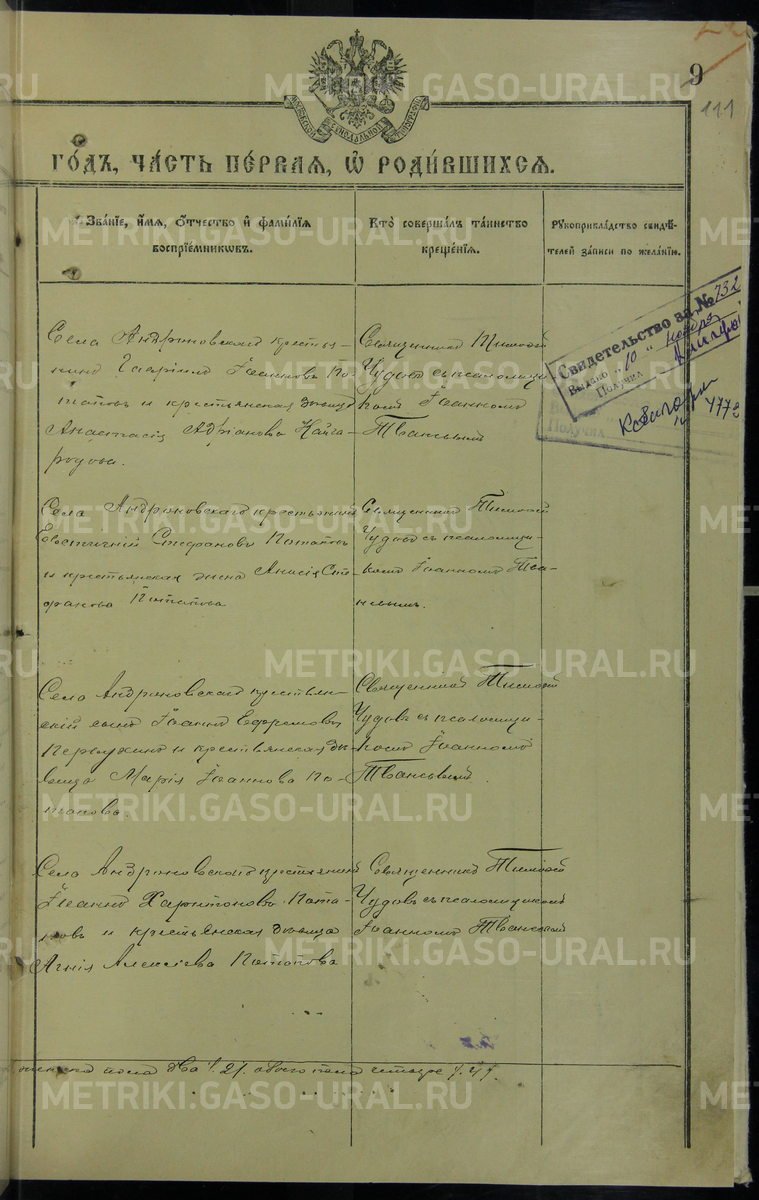 9
111
МОСКОВСКОЙ СѴНОДАЛЬНОЙ ТИПОГРАФІИ
METRIKI.GASO-URAL.RU
ГО́ДЪ, ЧА́СТЬ ПЕ́РВАЯ, Ѽ РОДИ́ВШИХСЯ.
Зва́ніе, и҆́мя, ѻ҆́тчество и҆ фами́лія
воспріе́мникѡвъ.
Кто̀ соверша́лъ та́инство
креще́нія.
Рꙋкоприкла́дство свидѣ́-
телей за́писи по жела́нію.
Села Андроновскаго крестья-
нинъ Гавріилъ Іоанновъ По-
таповъ и крестьянская дѣвица
Анастасія Адріанова Кайга-
родова.
Священникъ Тимоѳей
Чудовъ съ псаломщи-
комъ Іоанномъ
Свидетельство за № 732
Выдано „10“ ноября
Получил
4773
Села Андроновскаго крестьянинъ
Евстихій Стефановъ Потаповъ
и крестьянская жена Анисія Сте-
фанова Потапова
Священникъ Тимоѳей
Чудовъ съ псаломщи-
комъ Іоанномъ
Села Андроновскаго крестьян-
скій сынъ Іоаннъ Ефремовъ
и крестьянская дѣ-
вица Марія Іоаннова По-
тапова.
Священникъ Тимоѳей
Чудовъ съ псаломщи-
комъ Іоанномъ
Села Андроновскаго крестьянинъ
Іоаннъ Харитоновъ Пота-
повъ и крестьянская дѣвица
Агнія Алексіева Потапова
Священникъ Тимоѳей
Чудовъ съ псаломщикомъ
Іоанномъ
женска пола два /.2/. обоего пола четыре /.4/.